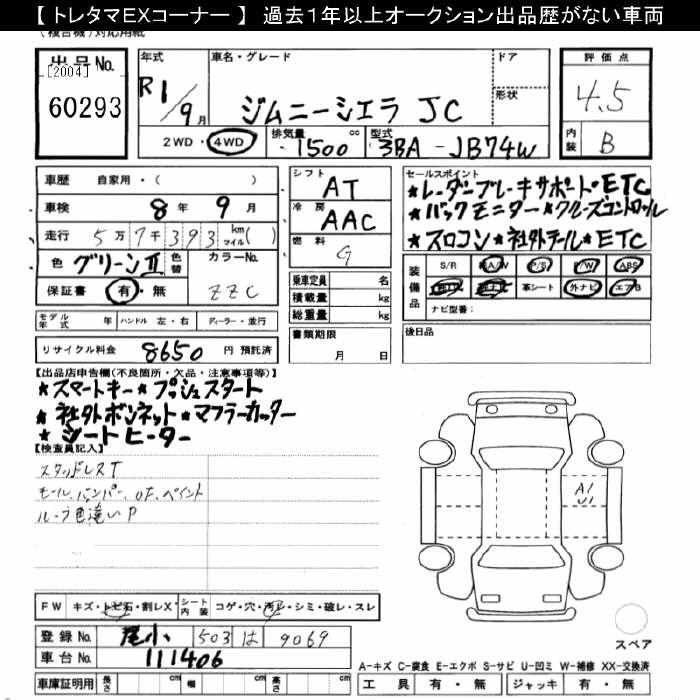 【 トレタマEXコーナー 】 過去1年以上オークション出品歴がない車両
(複合機)対応用紙
出品No. [2004] 60293
年式 R1/9月
車名・グレード ジムニーシエラ JC
ドア
形状
2WD・4WD 排気量 1500 cc 型式 3BA-JB74W
評価点 4.5
内装 B
車歴 自家用・( )
車検 8年 9月
走行 5万7千393 km マイル( )
色 グリーンⅡ 色替 カラーNo. ZZC
保証書 有・無
モデル年式 年 ハンドル 左・右 ディーラー・並行
リサイクル料金 8650 円 預託済
シフト AT
冷房 AAC
燃料 G
乗車定員 名
積載量 kg
総重量 kg
書類期限 月 日
セールスポイント
★レーダーブレーキサポート・ETC
★バックモニター★クルーズコントロール
★スロコン★社外テール★ETC
装備品 S/R 純A/W P/S P/W ABS
革シート 外ナビ エアB
ナビ型番:
後日品
【出品店申告欄(不良箇所・欠品・注意事項等)】
★スマートキー★プッシュスタート
★社外ボンネット★マフラーカッター
★シートヒーター
【検査員記入】
スタッドレスT
モール、バンパー、OF、ペイント
ルーフ色違いP
A1
U1
FW キズ・トビ石・割レX シート内装 コゲ・穴・汚レ・シミ・破レ・スレ
登録No. 尾小 503 は 9069
車台No. 111406
車庫証明用 長さ cm 幅 cm 高さ cm
スペア
A-キズ C-腐食 E-エクボ S-サビ U-凹ミ W-補修 XX-交換済
工具 有・無 ジャッキ 有・無